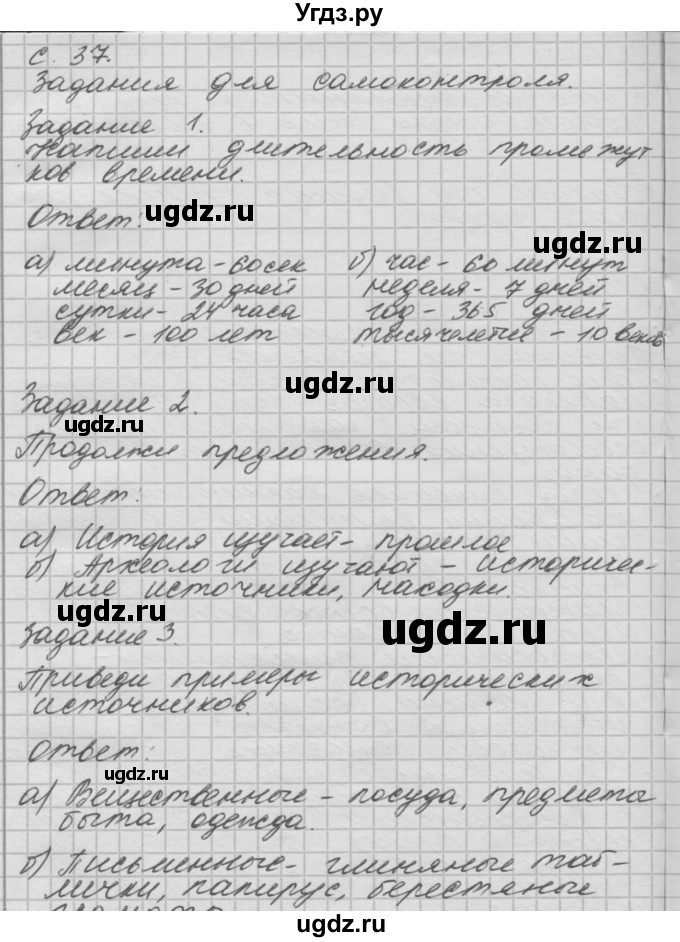 Угдз.ру
с. 37.
Задания для самоконтроля.
Задание 1.
Напиши длительность промежут
ков времени.
Ответ:
ugdz.ru
ugdz.ru
а) минута - 60 сек б) час - 60 минут
месяц - 30 дней неделя - 7 дней
сутки - 24 часа год - 365 дней
век - 100 лет тысячелетие - 10 веков
ugdz.ru
Задание 2.
ugdz.ru
Продолжи предложения.
Ответ:
ugdz.ru
а) История изучает - прошлое
б) Археологи изучают - историчес-
кие источники, находки.
ugdz.ru
Задание 3.
ugdz.ru
Приведи примеры исторических
источников.
Ответ:
ugdz.ru
ugdz.ru
а) Вещественные - посуда, предметы
быта, одежда.
б) Письменные - глиняные таб-
лички, папирус, берестяные
ugdz.ru